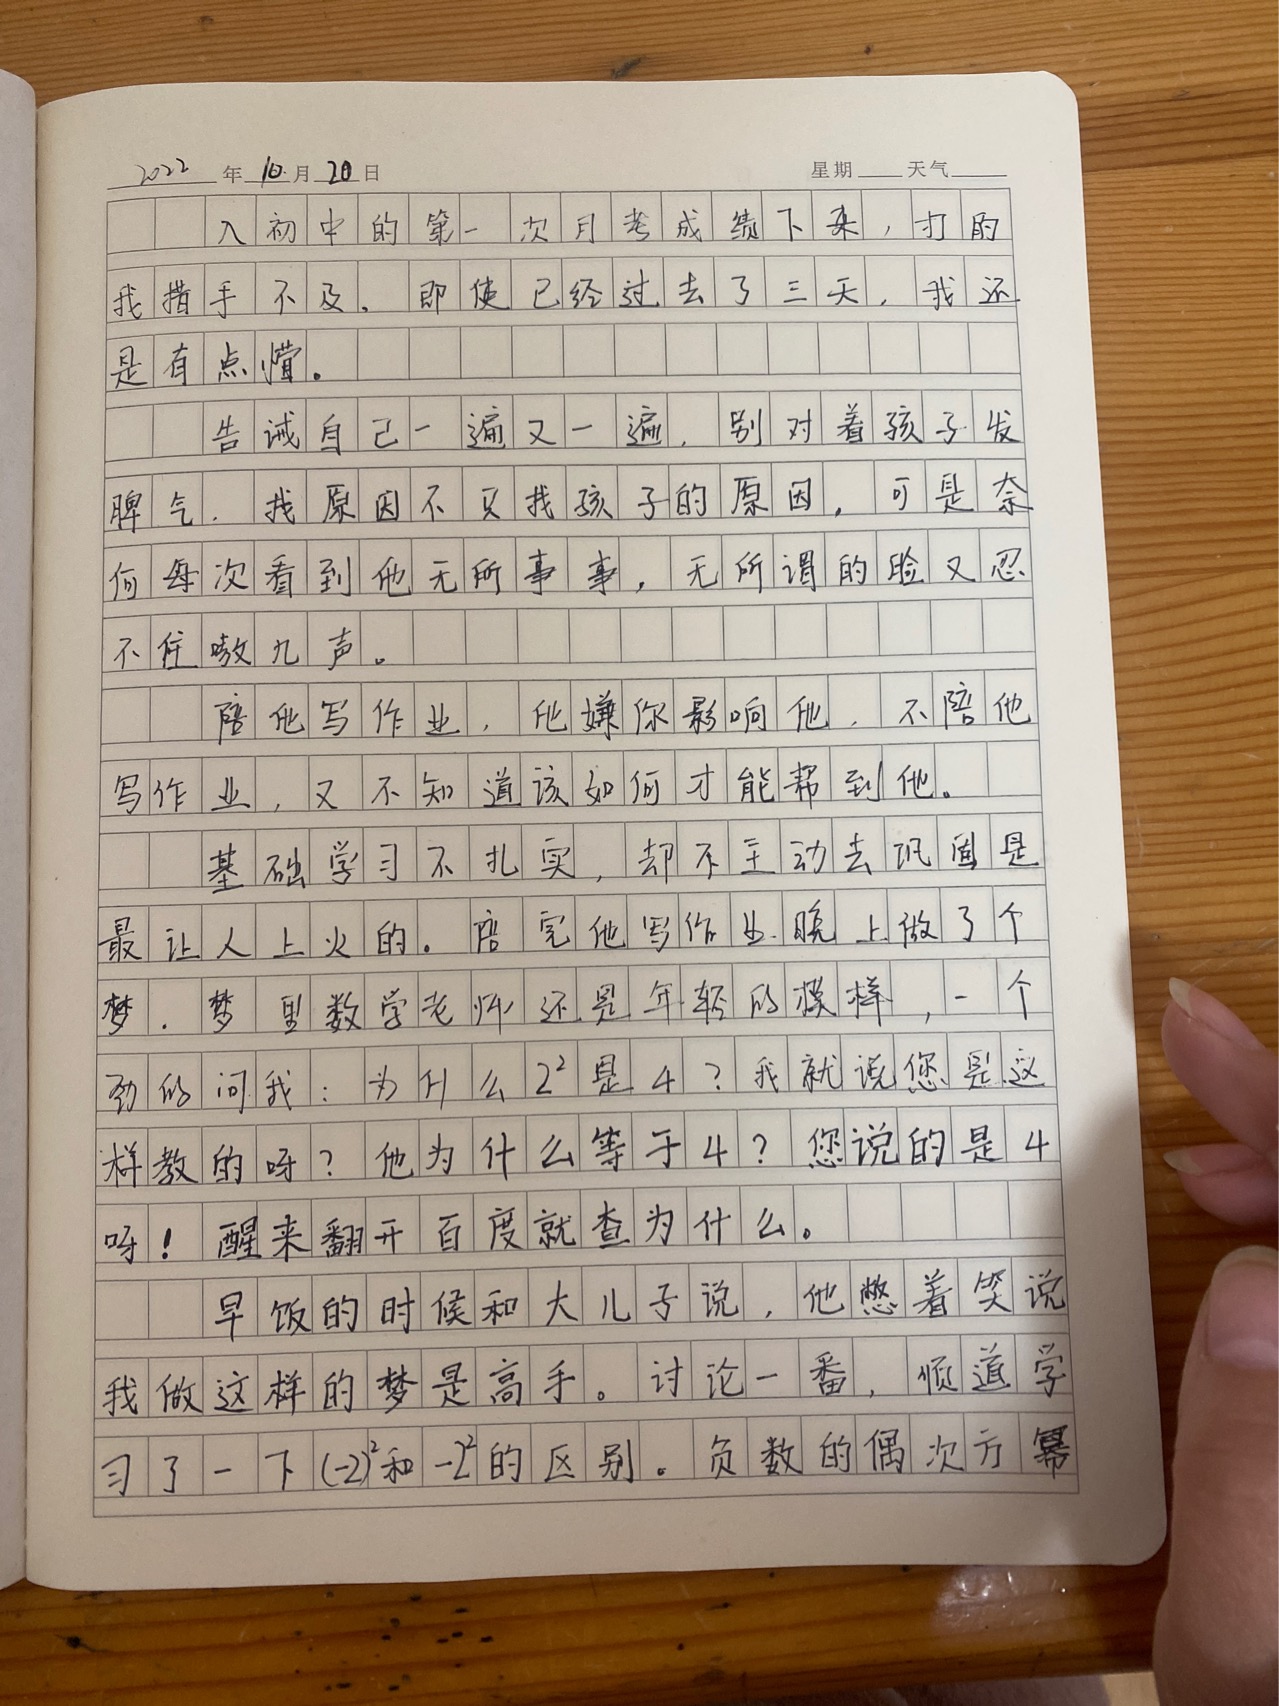 2022年10月20日 星期 天气
入初中的第一次月考成绩下来，打的
我措手不及。即使已经过去了三天，我还
是有点懵。
告诫自己一遍又一遍，别对着孩子发
脾气，找原因不只找孩子的原因，可是奈
何每次看到他无所事事，无所谓的脸又忍
不住嗷几声。
陪他写作业，他嫌你影响他，不陪他
写作业，又不知道该如何才能帮到他。
基础学习不扎实，却不主动去巩固是
最让人上火的。陪完他写作业晚上做了个
梦，梦里数学老师还是年轻的模样，一个
劲的问我：为什么2²是4？我就说您是这
样教的呀？他为什么等于4？您说的是4
呀！醒来翻开百度就查为什么。
早饭的时候和大儿子说，他憋着笑说
我做这样的梦是高手。讨论一番，顺道学
习了一下(-2)²和-2²的区别。负数的偶次方幂